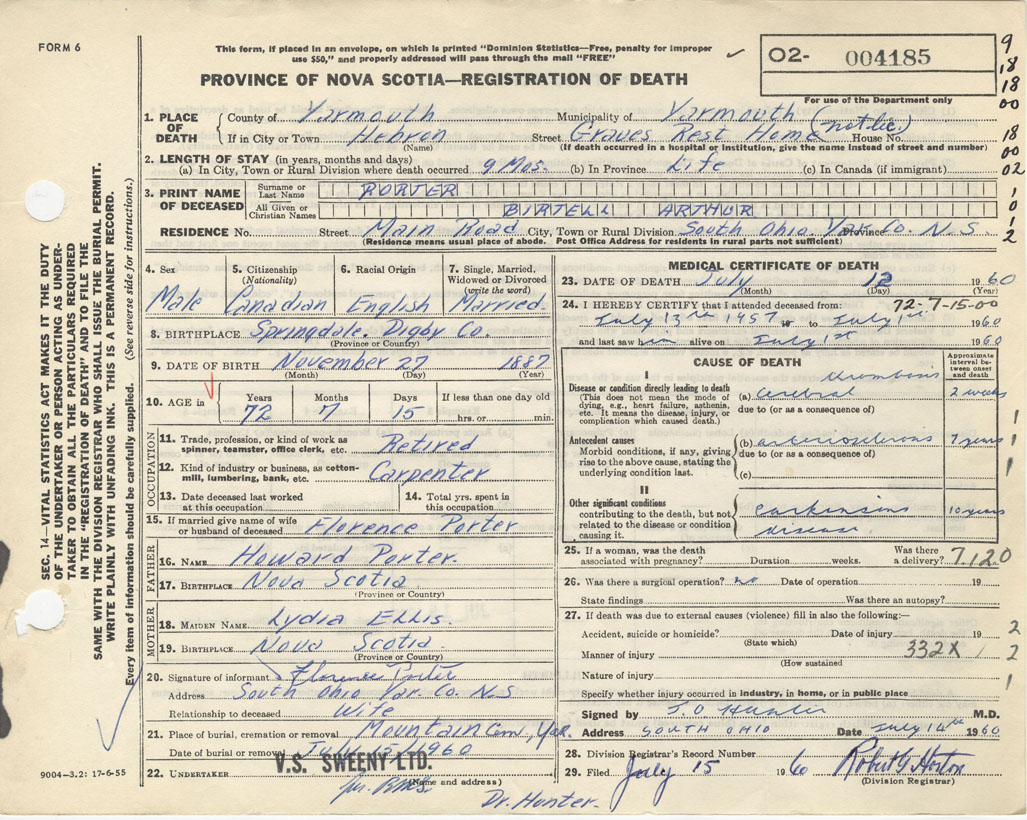 FORM 6
This form, if placed in an envelope, on which is printed "Dominion Statistics—Free, penalty for improper
use $50," and properly addressed will pass through the mail "FREE"
PROVINCE OF NOVA SCOTIA—REGISTRATION OF DEATH
O2- 004185
For use of the Department only
9
18
18
00
18
00
02
1
0
1
2
1. PLACE OF DEATH
County of Yarmouth Municipality of Yarmouth
If in City or Town Hebron Street Graves Rest Home (not lic.) House No.
(Name) (If death occurred in a hospital or institution, give the name instead of street and number)
2. LENGTH OF STAY (in years, months and days)
(a) In City, Town or Rural Division where death occurred 9 Mos. (b) In Province Life (c) In Canada (if immigrant)
3. PRINT NAME OF DECEASED
Surname or Last Name PORTER
All Given or Christian Names BIRTELL ARTHUR
RESIDENCE No. Street Main Road City, Town or Rural Division South Ohio Yar. Co. Province N.S.
(Residence means usual place of abode. Post Office Address for residents in rural parts not sufficient)
4. Sex Male
5. Citizenship (Nationality) Canadian
6. Racial Origin English
7. Single, Married, Widowed or Divorced (write the word) Married.
8. BIRTHPLACE Springdale. Digby Co.
(Province or Country)
9. DATE OF BIRTH November 27 1887
(Month) (Day) (Year)
10. AGE in Years 72 Months 7 Days 15 If less than one day old hrs. or min.
OCCUPATION
11. Trade, profession, or kind of work as spinner, teamster, office clerk, etc. Retired
12. Kind of industry or business, as cotton-mill, lumbering, bank, etc. Carpenter
13. Date deceased last worked at this occupation
14. Total yrs. spent in this occupation
15. If married give name of wife or husband of deceased Florence Porter
FATHER
16. NAME Howard Porter.
17. BIRTHPLACE Nova Scotia
(Province or Country)
MOTHER
18. MAIDEN NAME Lydia Ellis.
19. BIRTHPLACE Nova Scotia
(Province or Country)
20. Signature of informant Florence Porter
Address South Ohio Yar. Co. N.S
Relationship to deceased Wife
21. Place of burial, cremation or removal Mountain Cem, Yar.
Date of burial or removal July 15 1960
22. UNDERTAKER V.S. SWEENY LTD.
(Name and address)
9004—3.2: 17-6-55
Dr. Hunter.
MEDICAL CERTIFICATE OF DEATH
23. DATE OF DEATH July 12 1960
(Month) (Day) (Year)
72-7-15-00
24. I HEREBY CERTIFY that I attended deceased from:
July 13th 1957 19 to July 1st 1960
and last saw him alive on July 1st 1960
CAUSE OF DEATH
Approximate interval between onset and death
I
Disease or condition directly leading to death
(This does not mean the mode of dying, e.g., heart failure, asthenia, etc. It means the disease, injury, or complication which caused death.)
(a) cerebral thrombosis 2 weeks
due to (or as a consequence of)
Antecedent causes
Morbid conditions, if any, giving rise to the above cause, stating the underlying condition last.
(b) arteriosclerosis 7 years
due to (or as a consequence of)
(c)
II
Other significant conditions
contributing to the death, but not related to the disease or condition causing it.
Parkinsons disease 10 years
1
1
1
25. If a woman, was the death associated with pregnancy? Duration weeks. Was there a delivery?
7.120
26. Was there a surgical operation? no Date of operation 19
State findings Was there an autopsy?
27. If death was due to external causes (violence) fill in also the following:—
Accident, suicide or homicide? Date of injury 19
(State which)
Manner of injury 332X
(How sustained)
Nature of injury
Specify whether injury occurred in industry, in home, or in public place
2
2
1
Signed by S.O Hunter M.D.
Address SOUTH OHIO Date July 14th 1960
28. Division Registrar's Record Number
29. Filed July 15 1960 Robert G Horton
(Division Registrar)
SEC. 14—VITAL STATISTICS ACT MAKES IT THE DUTY
OF THE UNDERTAKER OR PERSON ACTING AS UNDER-
TAKER TO OBTAIN ALL THE PARTICULARS REQUIRED
IN THE "REGISTRATION OF DEATH" AND TO FILE THE
SAME WITH THE DIVISION REGISTRAR WHO SHALL ISSUE THE BURIAL PERMIT.
WRITE PLAINLY WITH UNFADING INK. THIS IS A PERMANENT RECORD.
Every item of information should be carefully supplied. (See reverse side for instructions.)